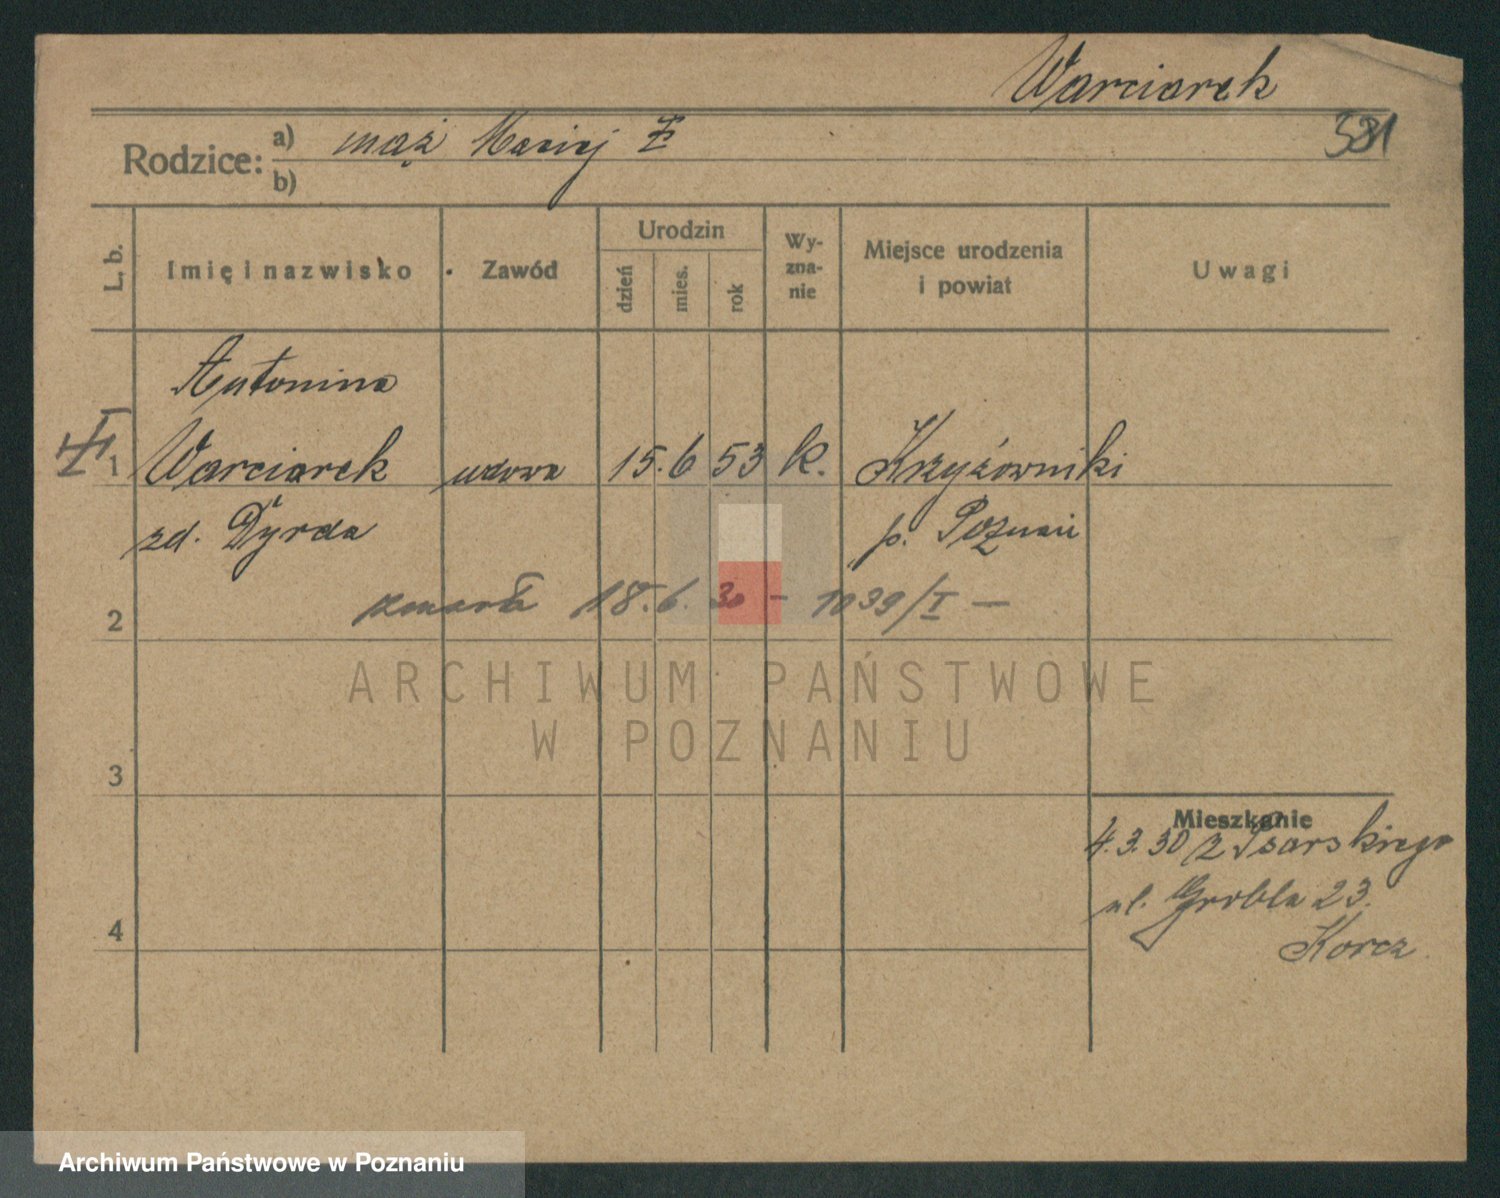 Warciarek
381
Rodzice:
a) mąż Maciej
b)
L. b.
Imię i nazwisko
Zawód
Urodzin
dzień
mies.
rok
Wy-
zna-
nie
Miejsce urodzenia
i powiat
Uwagi
Antonina
1 Warciarek wdowa 15. 6 53 k. Krzyżowniki
zd. Dyrda p. Poznań
2 zmarła 18. 6. 30 - 1039/I -
ARCHIWUM PAŃSTWOWE
W POZNANIU
3
Mieszkanie
4. 3. 30 z Psarskiego
ul. Grobla 23.
4
Korcz.
Archiwum Państwowe w Poznaniu